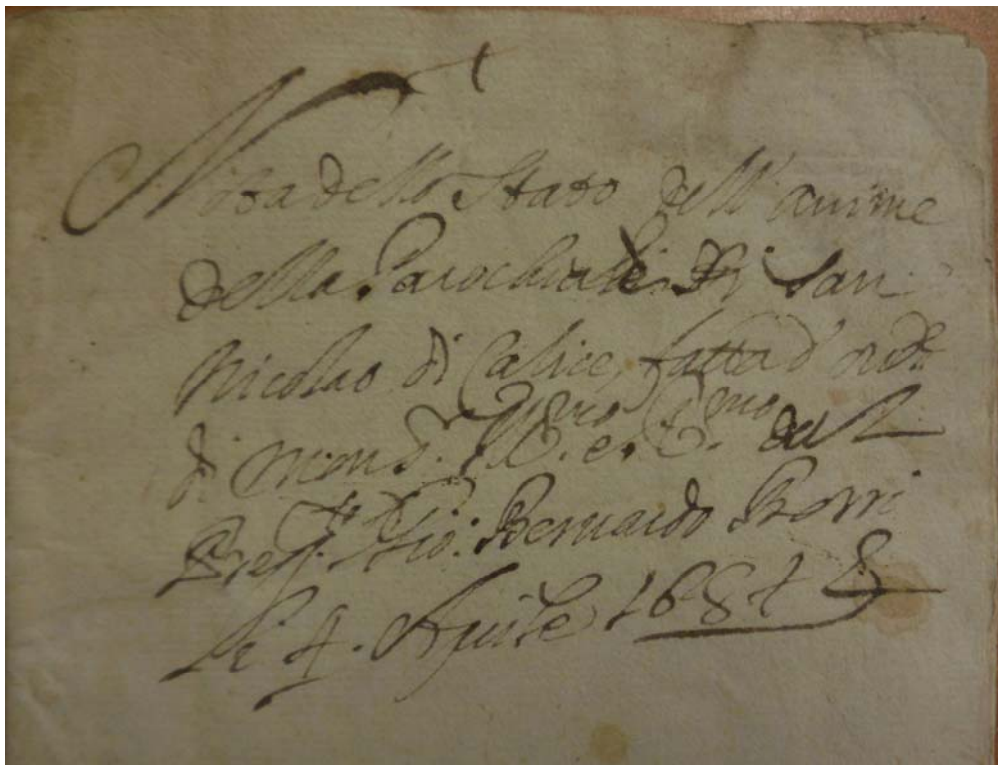 Nota dello Stato dell'anime
della Parochiale di San
Nicolao di Calice, fatta d'ord.e
di Mons.r Ill.mo e R.mo dal
Pre Gio: Bernardo Borri
li 4. Aprile 1681